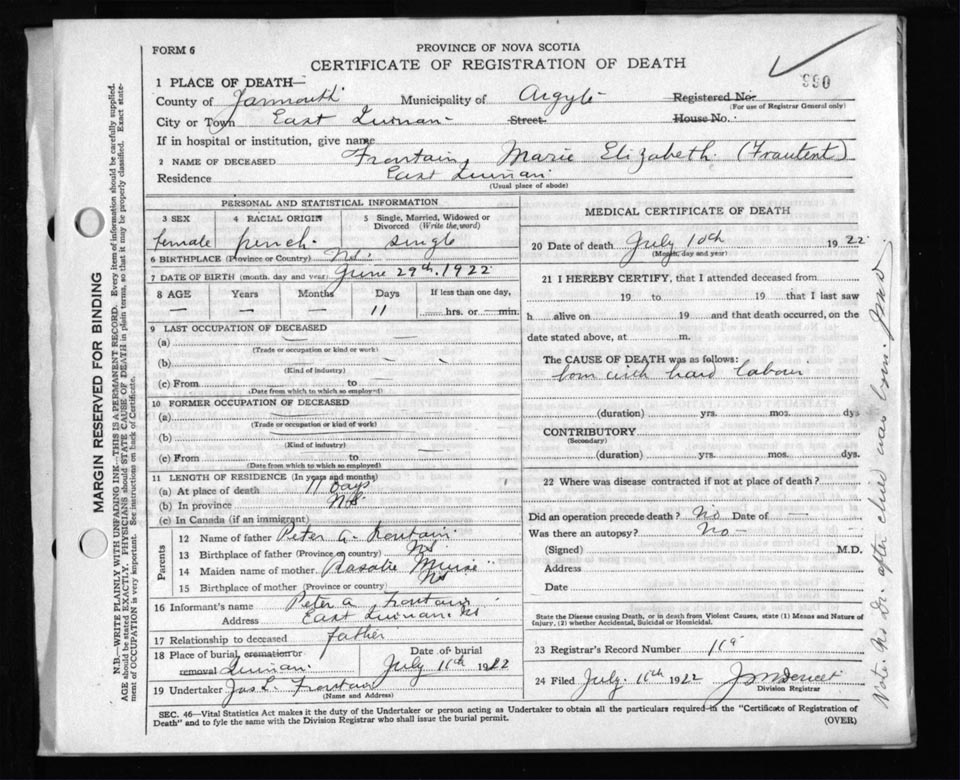 FORM 6
PROVINCE OF NOVA SCOTIA
CERTIFICATE OF REGISTRATION OF DEATH
990
1 PLACE OF DEATH—
County of Yarmouth Municipality of Argyle Registered No.
(For use of Registrar General only)
City or Town East Quinan Street House No.
If in hospital or institution, give name
2 NAME OF DECEASED Frontain, Marie Elizabeth (Frautent)
Residence East Quinan
(Usual place of abode)
PERSONAL AND STATISTICAL INFORMATION
3 SEX 4 RACIAL ORIGIN 5 Single, Married, Widowed or Divorced (Write the word)
female french single
6 BIRTHPLACE (Province or Country) N.S.
7 DATE OF BIRTH (month, day and year) June 29th, 1922
8 AGE Years Months Days If less than one day,
— — 11 hrs. or min.
9 LAST OCCUPATION OF DECEASED
(a)
(Trade or occupation or kind or work)
(b)
(Kind of industry)
(c) From to
(Date from which to which so employed)
10 FORMER OCCUPATION OF DECEASED
(a)
(Trade or occupation or kind of work)
(b)
(Kind of industry)
(c) From to
(Date from which to which so employed)
11 LENGTH OF RESIDENCE (In years and months)
(a) At place of death 11 Days
(b) In province N.S.
(c) In Canada (if an immigrant)
Parents
12 Name of father Peter A. Frontain
13 Birthplace of father (Province or country) N.S.
14 Maiden name of mother Rosalie Muise
15 Birthplace of mother (Province or country) N.S.
16 Informant's name Peter A. Frontain
Address East Quinan N.S.
17 Relationship to deceased father
18 Place of burial, cremation or removal Quinan Date of burial July 11th 1922
19 Undertaker Jas L. Frontain
(Name and Address)
MEDICAL CERTIFICATE OF DEATH
20 Date of death July 10th 1922
(Month, day and year)
21 I HEREBY CERTIFY, that I attended deceased from
19 to 19 that I last saw
h alive on 19 and that death occurred, on the
date stated above, at m.
The CAUSE OF DEATH was as follows:
born with hard labour
(duration) yrs. mos. dys
CONTRIBUTORY
(Secondary)
(duration) yrs. mos. dys.
22 Where was disease contracted if not at place of death?
Did an operation precede death? No Date of —
Was there an autopsy? No
(Signed) M.D.
Address
Date
State the Disease causing Death, or in death from Violent Causes, state (1) Means and Nature of Injury, (2) whether Accidental, Suicidal or Homicidal.
23 Registrar's Record Number
24 Filed July 11th 1922
Division Registrar
SEC. 46—Vital Statistics Act makes it the duty of the Undertaker or person acting as Undertaker to obtain all the particulars required in the "Certificate of Registration of
Death" and to fyle the same with the Division Registrar who shall issue the burial permit.
(OVER)
MARGIN RESERVED FOR BINDING
N.B.—WRITE PLAINLY WITH UNFADING INK—THIS IS A PERMANENT RECORD. Every item of information should be carefully supplied.
AGE should be stated EXACTLY. PHYSICIANS should STATE CAUSE OF DEATH in plain terms, so that it may be properly classified. Exact statement of OCCUPATION is very important. See instructions on back of Certificate.
Note. No Dr. after child was born.